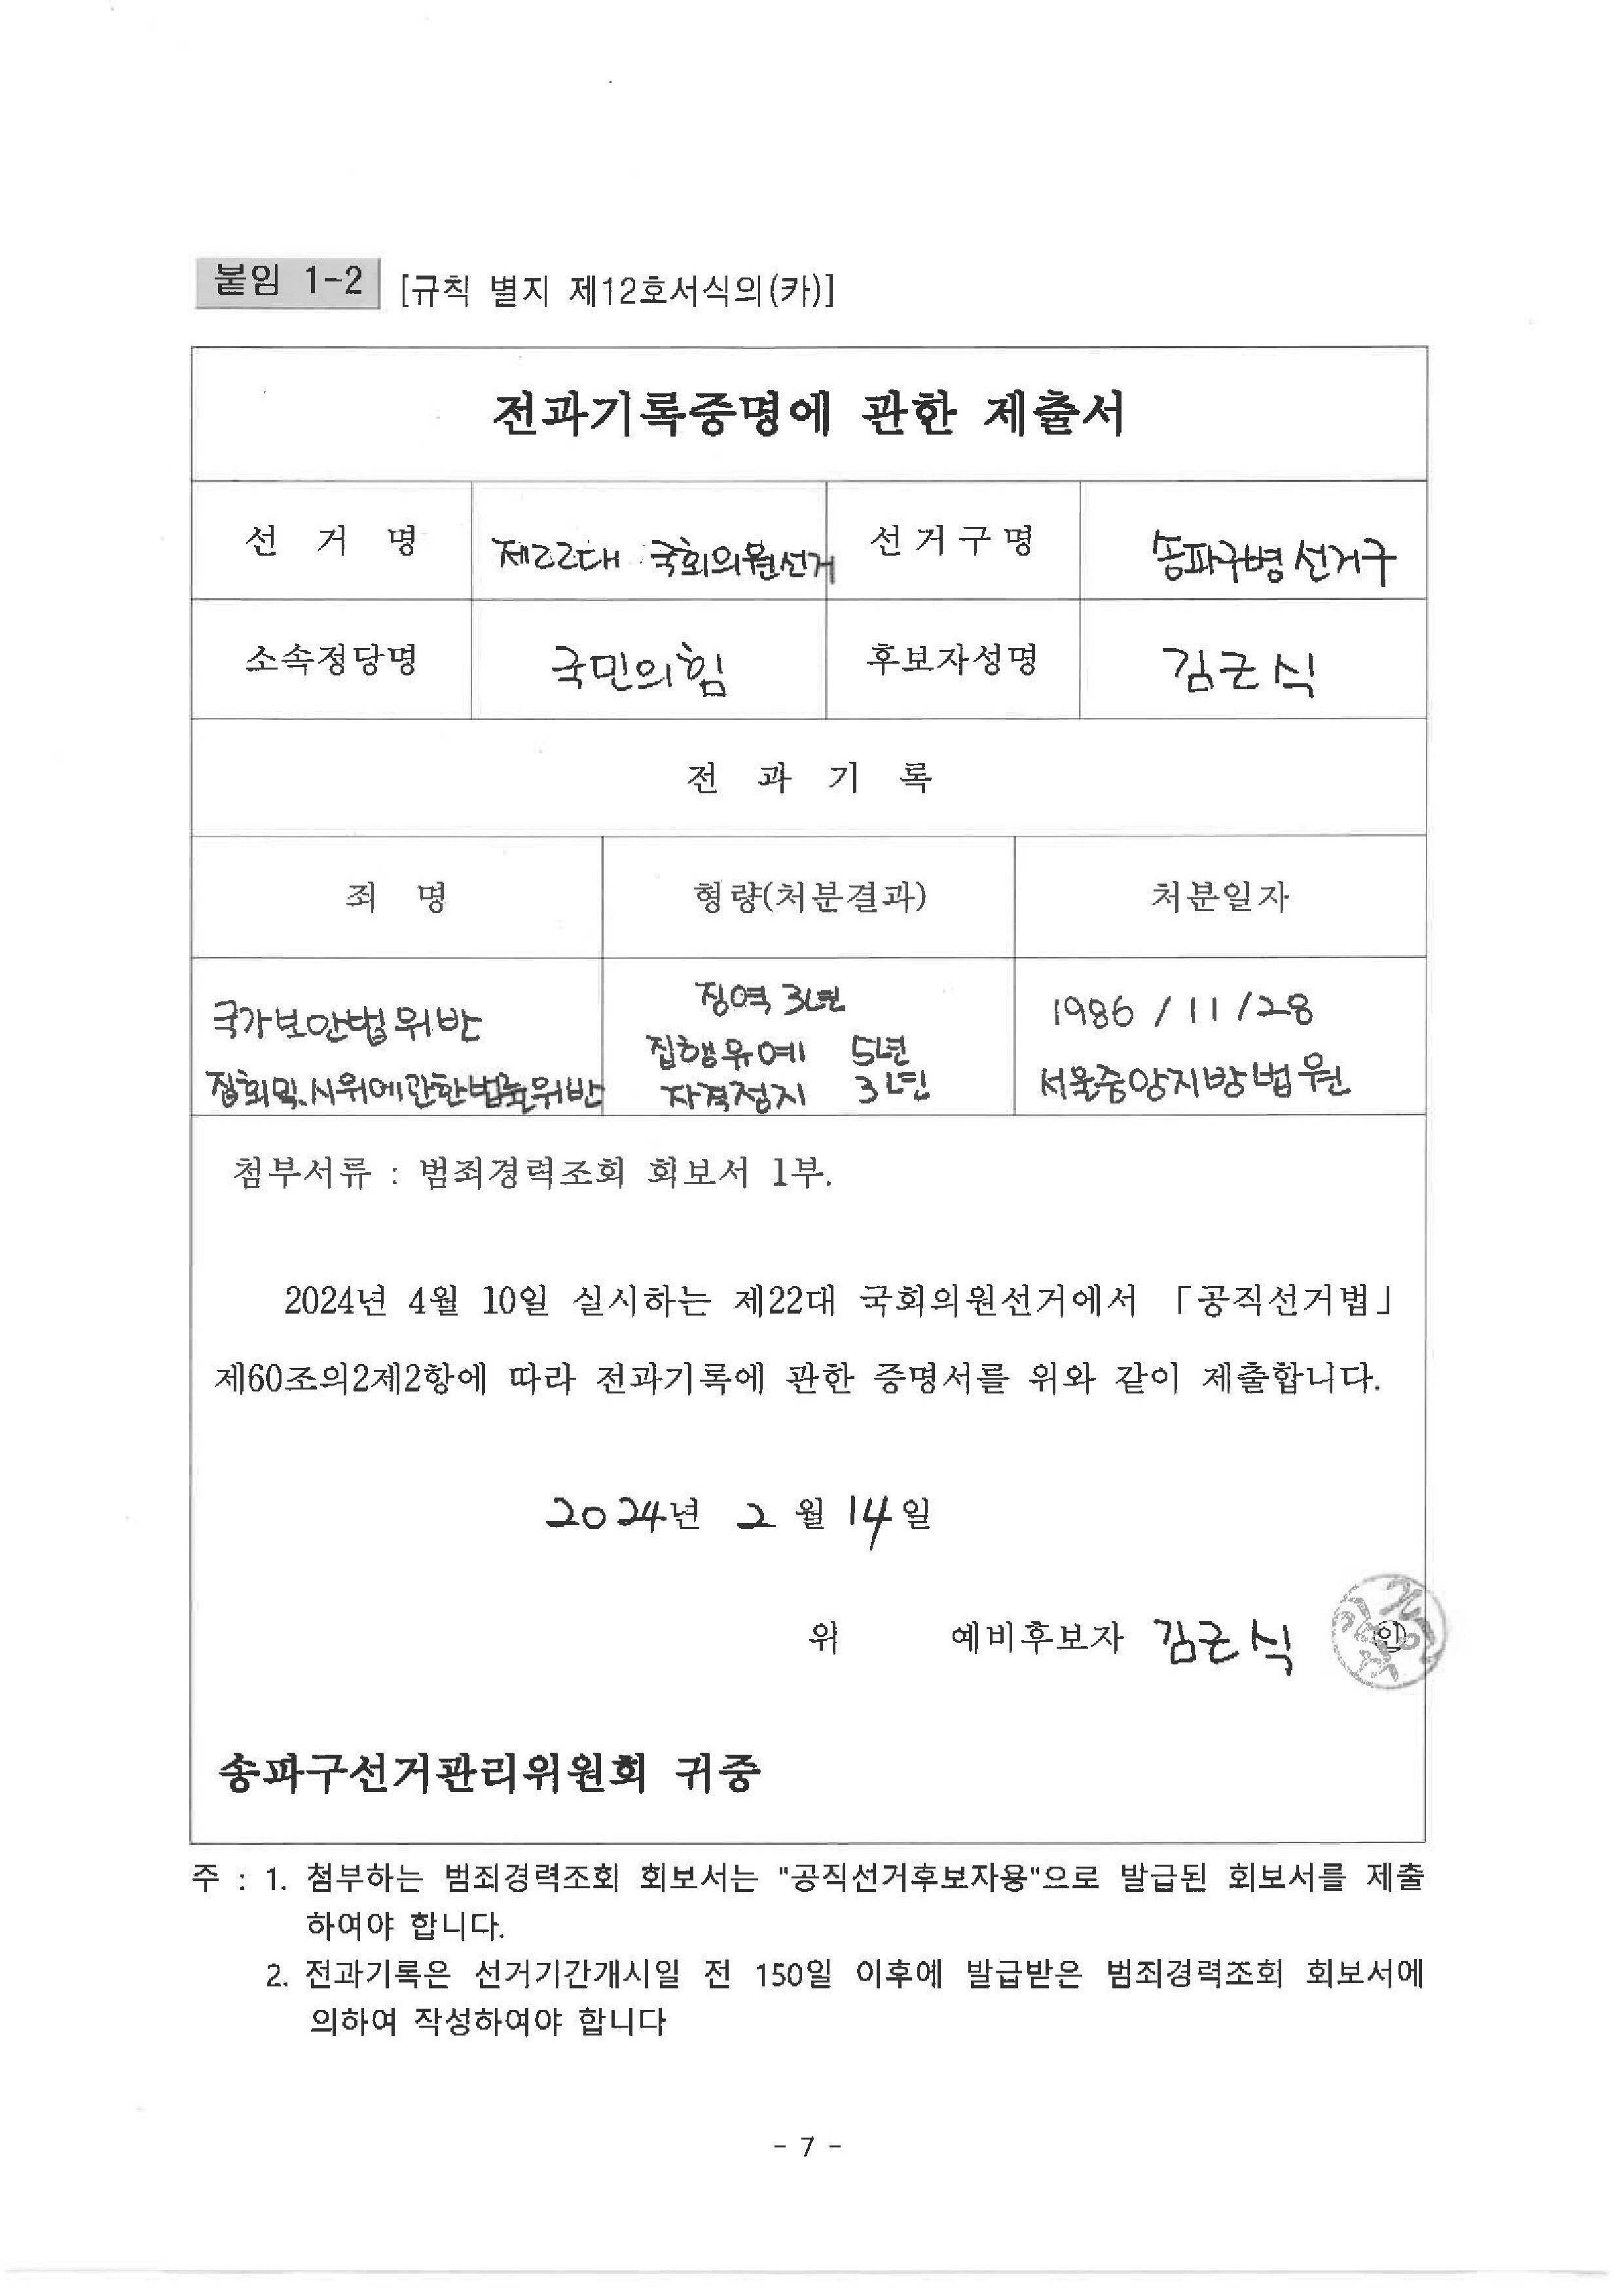 붙임 1-2 [규칙 별지 제12호서식의(카)]
전과기록증명에 관한 제출서
선 거 명 제22대 국회의원선거 선거구명 송파구병 선거구
소속정당명 국민의힘 후보자성명 김근식
전 과 기 록
죄 명 형량(처분결과) 처분일자
국가보안법위반 징역 3년 1986 / 11 /28
집회및시위에관한법률위반 집행유예 5년 서울중앙지방법원
자격정지 3년
첨부서류 : 범죄경력조회 회보서 1부.
2024년 4월 10일 실시하는 제22대 국회의원선거에서 「공직선거법」
제60조의2제2항에 따라 전과기록에 관한 증명서를 위와 같이 제출합니다.
2024년 2월 14일
위 예비후보자 김근식 인
송파구선거관리위원회 귀중
주 : 1. 첨부하는 범죄경력조회 회보서는 "공직선거후보자용"으로 발급된 회보서를 제출
하여야 합니다.
2. 전과기록은 선거기간개시일 전 150일 이후에 발급받은 범죄경력조회 회보서에
의하여 작성하여야 합니다
- 7 -